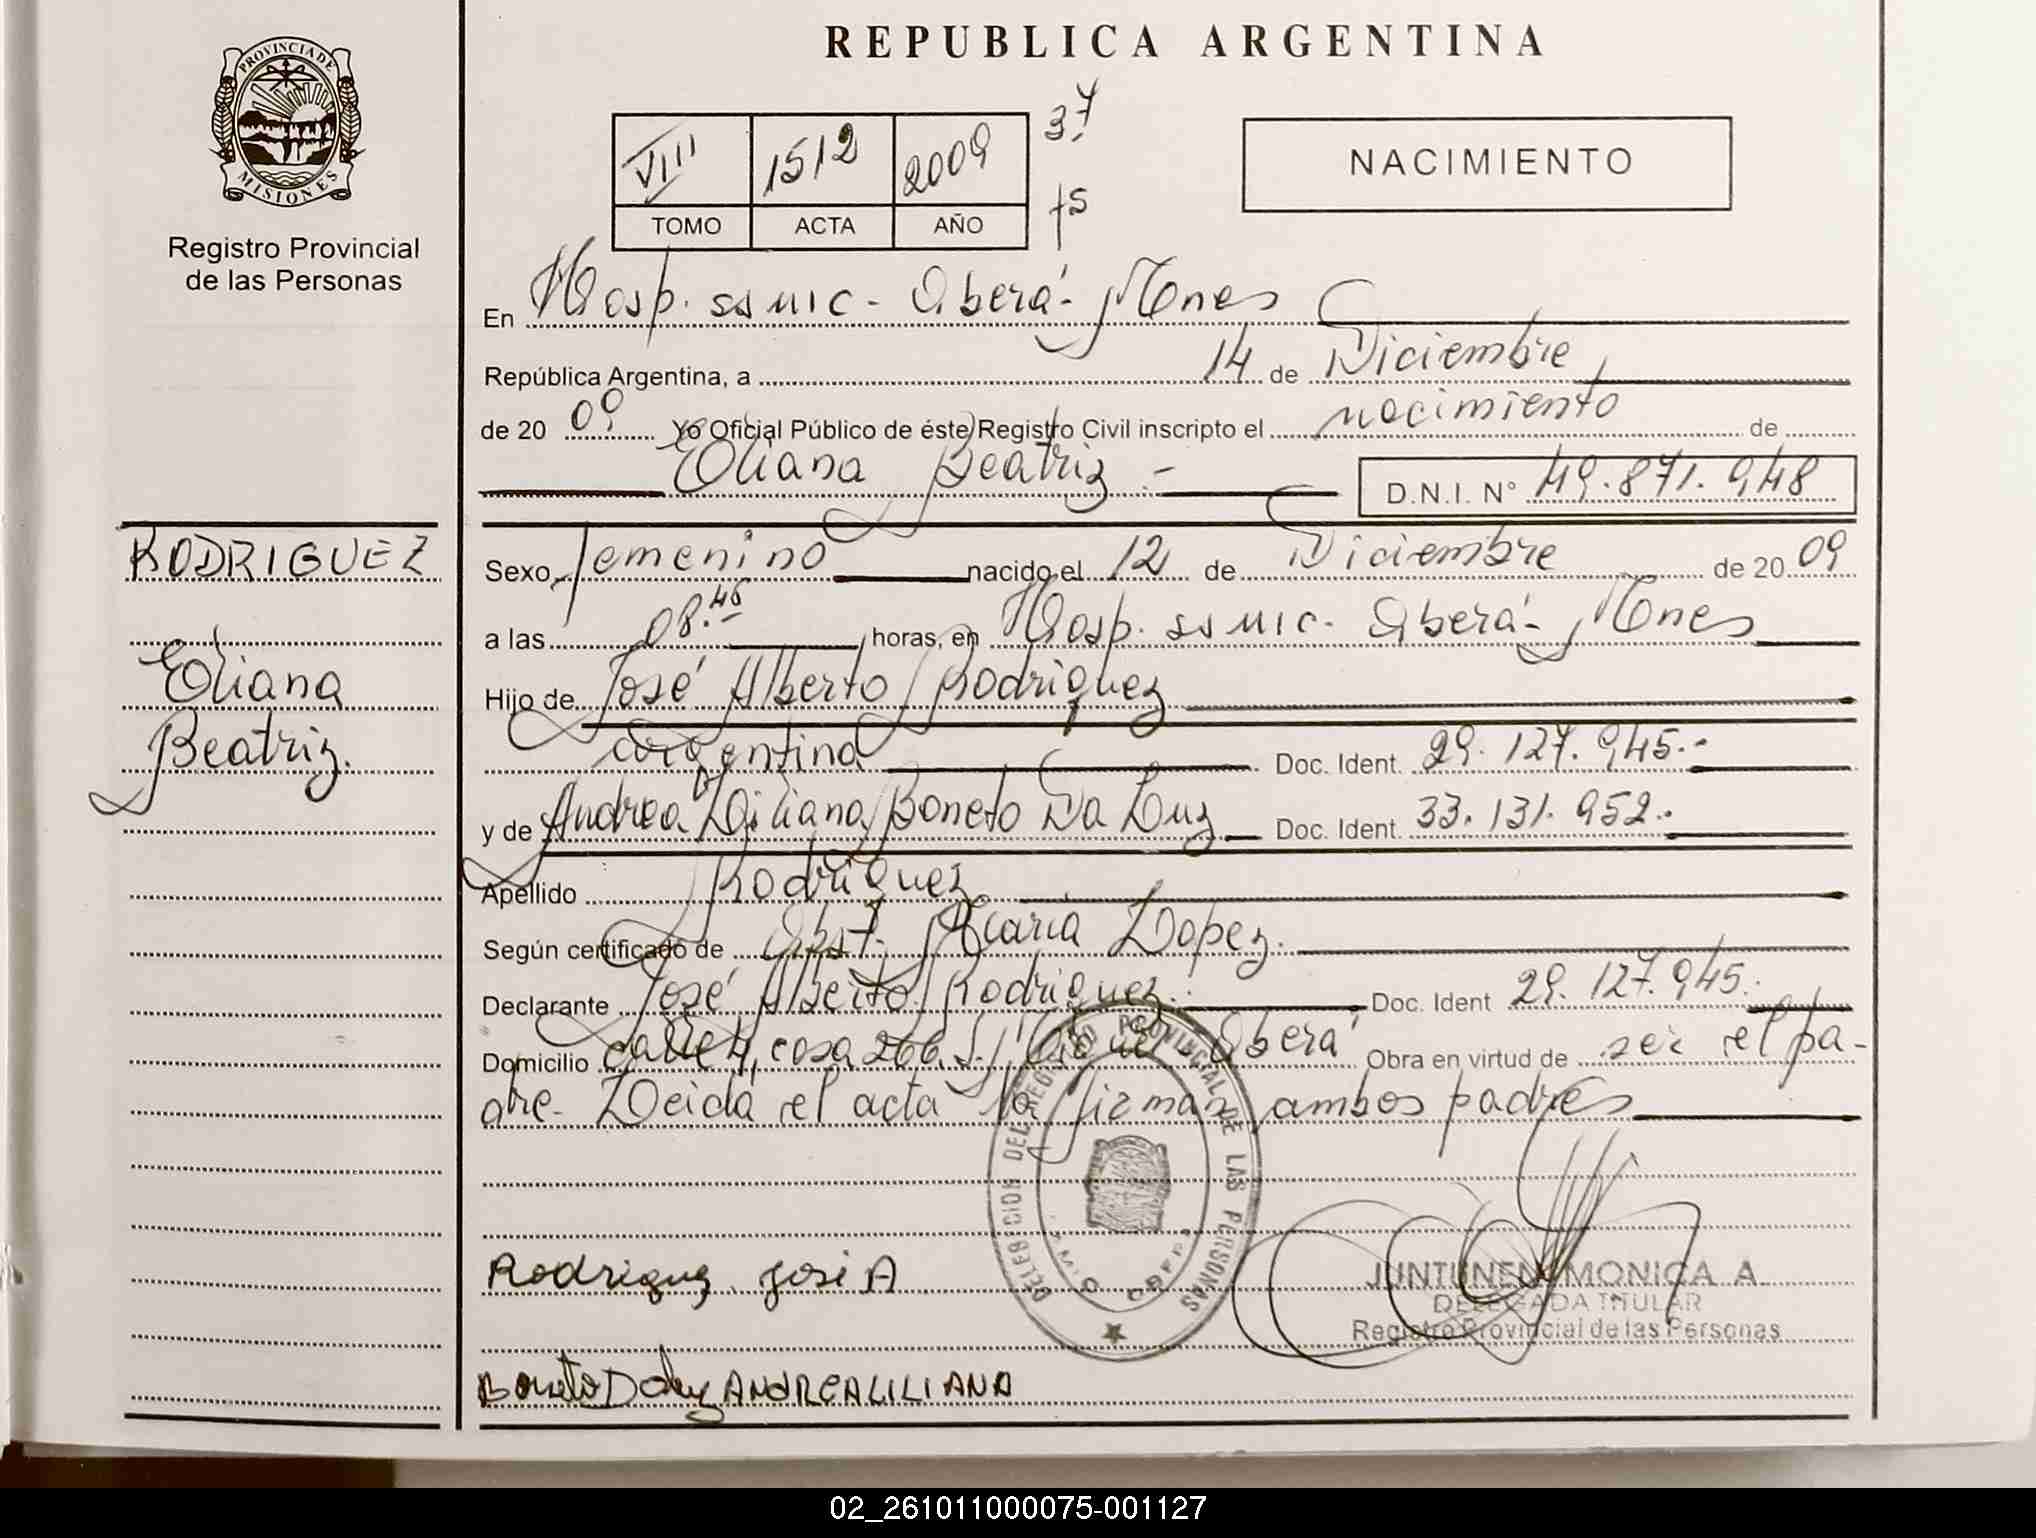 REPUBLICA ARGENTINA
PROVINCIA DE
MISIONES
Registro Provincial
de las Personas
VIII 1512 2009 37
TOMO ACTA AÑO fs
NACIMIENTO
En Hosp. ss mic - Oberá - Mnes
República Argentina, a 14 de Diciembre
de 20 09 Yo Oficial Público de éste Registro Civil inscripto el nacimiento de
Eliana Beatriz - D.N.I. N° 49.871.948
RODRIGUEZ
Eliana
Beatriz.
Sexo femenino nacido el 12 de Diciembre de 20 09
a las 08.45 horas, en Hosp. ss mic - Oberá - Mnes
Hijo de José Alberto Rodriguez
argentina Doc. Ident. 29.127.945.-
y de Andrea Liliana Boneto Da Luz Doc. Ident. 33.131.952.-
Apellido Rodriguez
Según certificado de Obst. Maria Lopez.
Declarante José Alberto Rodriguez. Doc. Ident 29.127.945.
Domicilio calle 4, casa 266, Oberá Obra en virtud de ser el pa-
dre - Leida el acta la firman ambos padres
DELEGACION DEL REGISTRO PROVINCIAL DE LAS PERSONAS
Rodriguez José A
JUNTUNEN MONICA A.
DELEGADA TITULAR
Registro Provincial de las Personas
Boneto Daluz ANDREA LILIANA
02_261011000075-001127